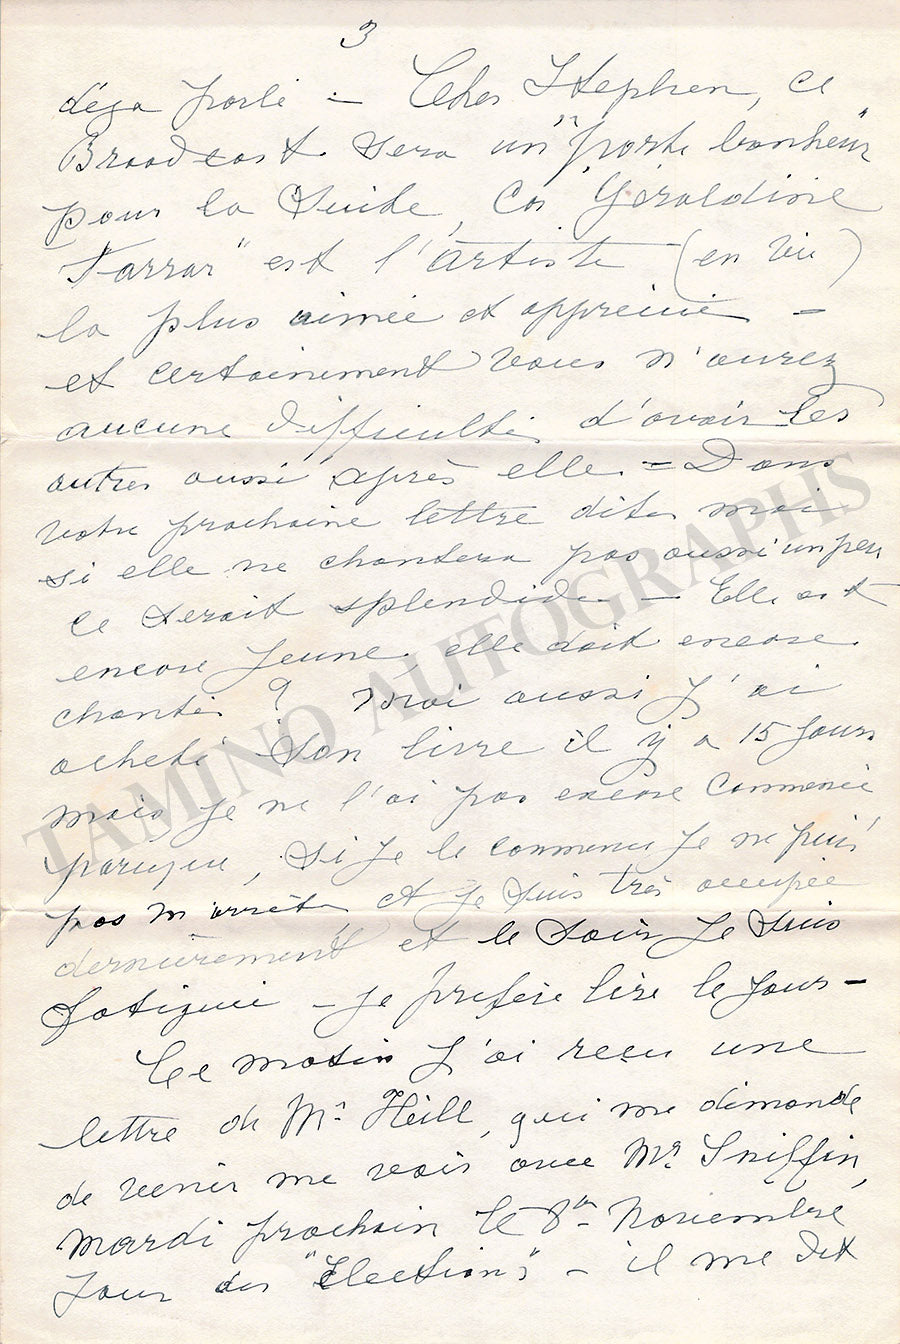 3
déja parlé - Cher Stephen, ce
Broadcast sera un "porte bonheur"
pour la Suite, Car "Géraldine
Farrar" est l'artiste (en vie)
la plus aimée et appreciée -
et certainement vous n'aurez
aucune difficultés d'avoir les
autres aussi après elle - Dans
votre prochaine lettre dites moi
si elle ne chantera pas aussi un peu
ce serait splendide - Elle est
encore jeune, elle doit encore
chanter ? Moi aussi j'ai
acheté Son livre il y a 15 jours
mais je ne l'ai pas encore Commencé
parceque, si je le commence je ne puis
pas m'arrêter et je suis très occupée
dernièrement et le soir je suis
fatiguée - je prefère lire le jour -
Ce matin j'ai reçu une
lettre de Mr Heill, qui me demande
de venir me voir avec Mr Sniffin,
mardi prochain le 8 Novembre
jour des "Elections" - il me dit
TAMINO AUTOGRAPHS